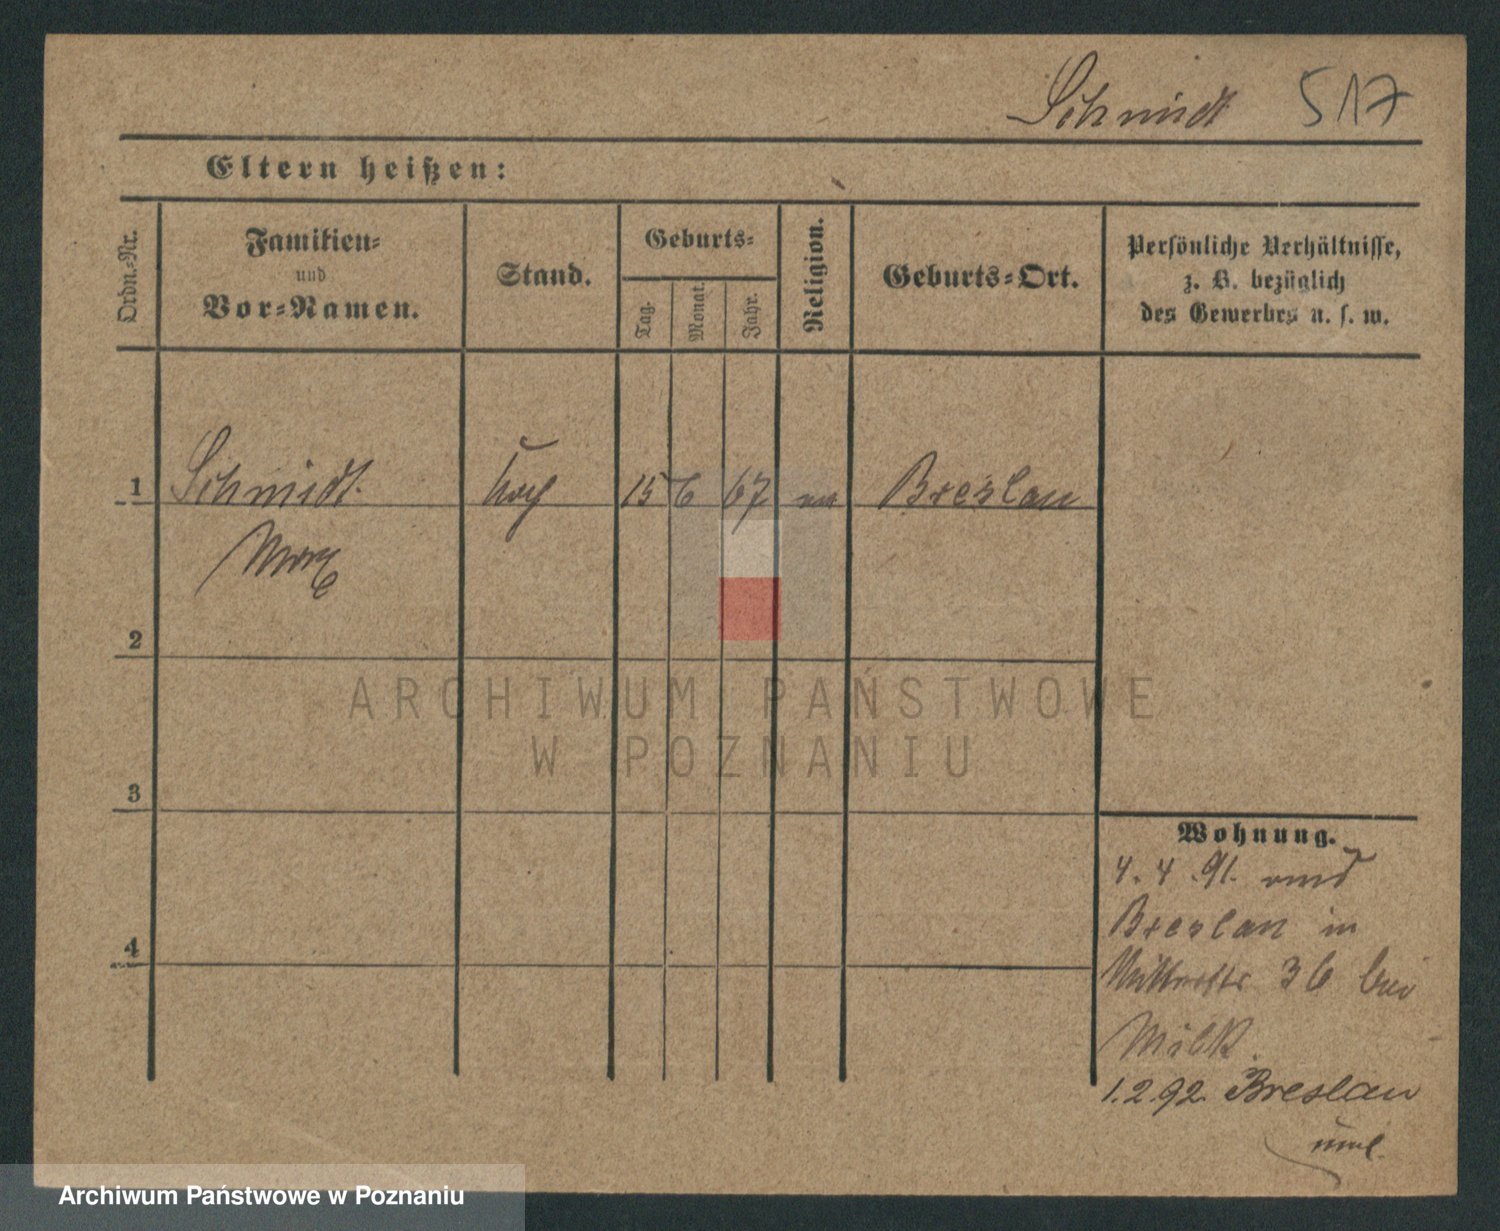 Schmidt 517
Eltern heißen:
Ordn.-Nr.
Familien-
und
Vor-Namen.
Stand.
Geburts-
Tag.
Monat.
Jahr.
Religion.
Geburts-Ort.
Persönliche Verhältnisse,
z. B. bezüglich
des Gewerbes u. s. w.
1 Schmidt Koch 15 6 67 Breslau
Max
2
3
4
ARCHIWUM PAŃSTWOWE
W POZNANIU
Wohnung.
4. 4. 91.
Breslau in
36 bei
1.2.92. Breslau
Archiwum Państwowe w Poznaniu